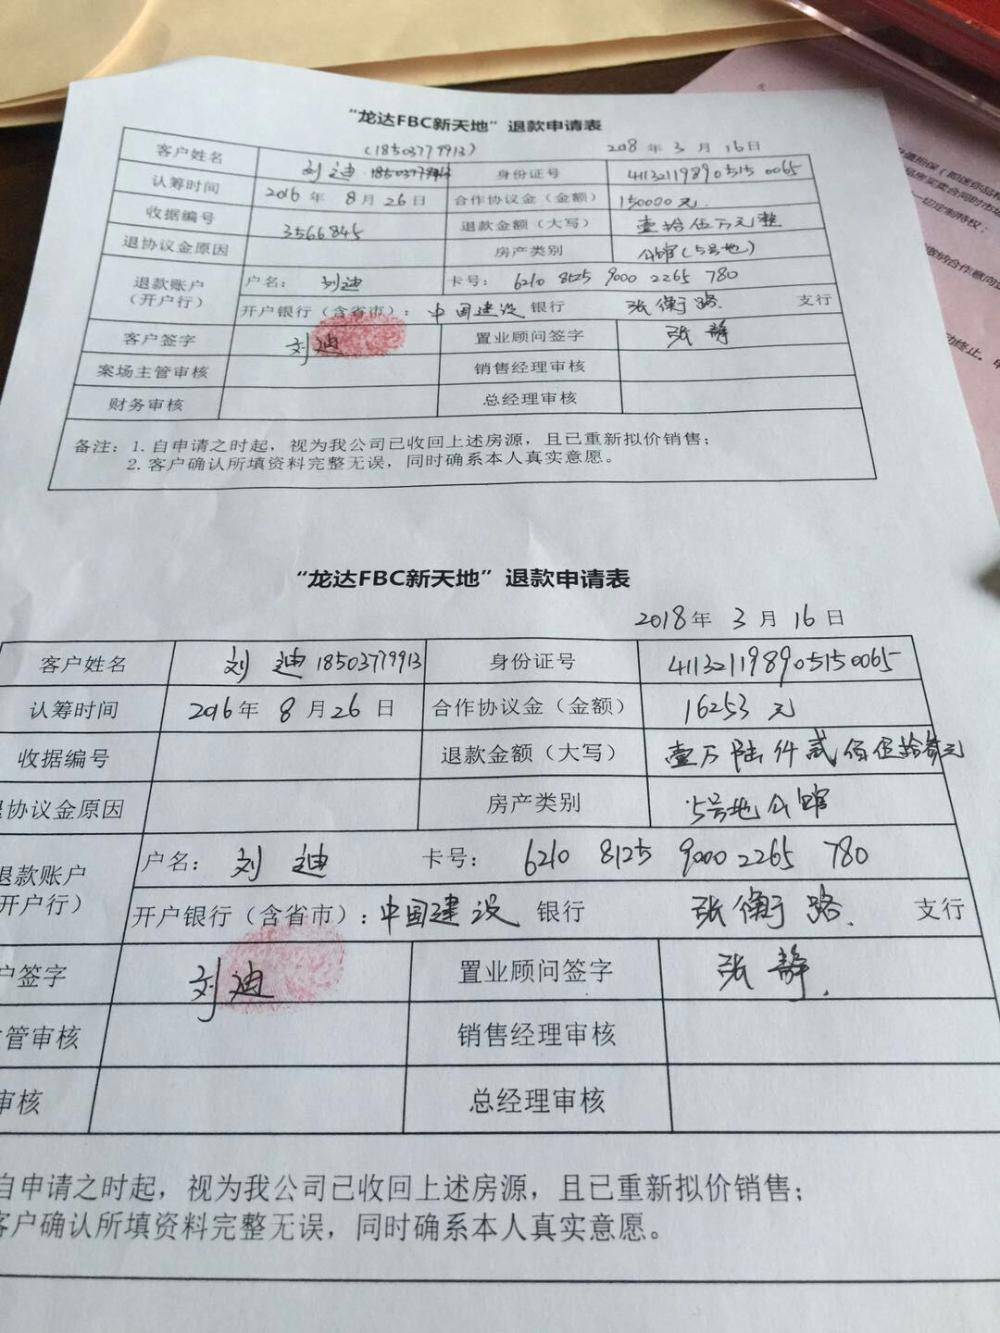 “龙达FBC新天地”退款申请表
(18503779913) 2018 年 3 月 16 日
客户姓名 刘迪 身份证号 411321198905150065
认筹时间 2016 年 8 月 26 日 合作协议金（金额） 150000 元.
收据编号 3566845 退款金额（大写） 壹拾伍万元整
退协议金原因 房产类别 公馆(5号地)
退款账户 户名： 刘迪 卡号： 6210 8125 9000 2265 780
（开户行） 开户银行（含省市）： 中国建设 银行 张衡路. 支行
客户签字 刘迪 置业顾问签字 张静
案场主管审核 销售经理审核
财务审核 总经理审核
备注：1. 自申请之时起，视为我公司已收回上述房源，且已重新拟价销售；
2. 客户确认所填资料完整无误，同时确系本人真实意愿。
“龙达FBC新天地”退款申请表
2018 年 3 月 16 日
客户姓名 刘迪 18503779913 身份证号 411321198905150065
认筹时间 2016 年 8 月 26 日 合作协议金（金额） 16253 元
收据编号 退款金额（大写） 壹万陆仟贰佰伍拾叁元
协议金原因 房产类别 5号地公馆
退款账户 户名： 刘迪 卡号： 6210 8125 9000 2265 780
开户行） 开户银行（含省市）： 中国建设 银行 张衡路. 支行
户签字 刘迪 置业顾问签字 张静.
管审核 销售经理审核
审核 总经理审核
自申请之时起，视为我公司已收回上述房源，且已重新拟价销售；
客户确认所填资料完整无误，同时确系本人真实意愿。